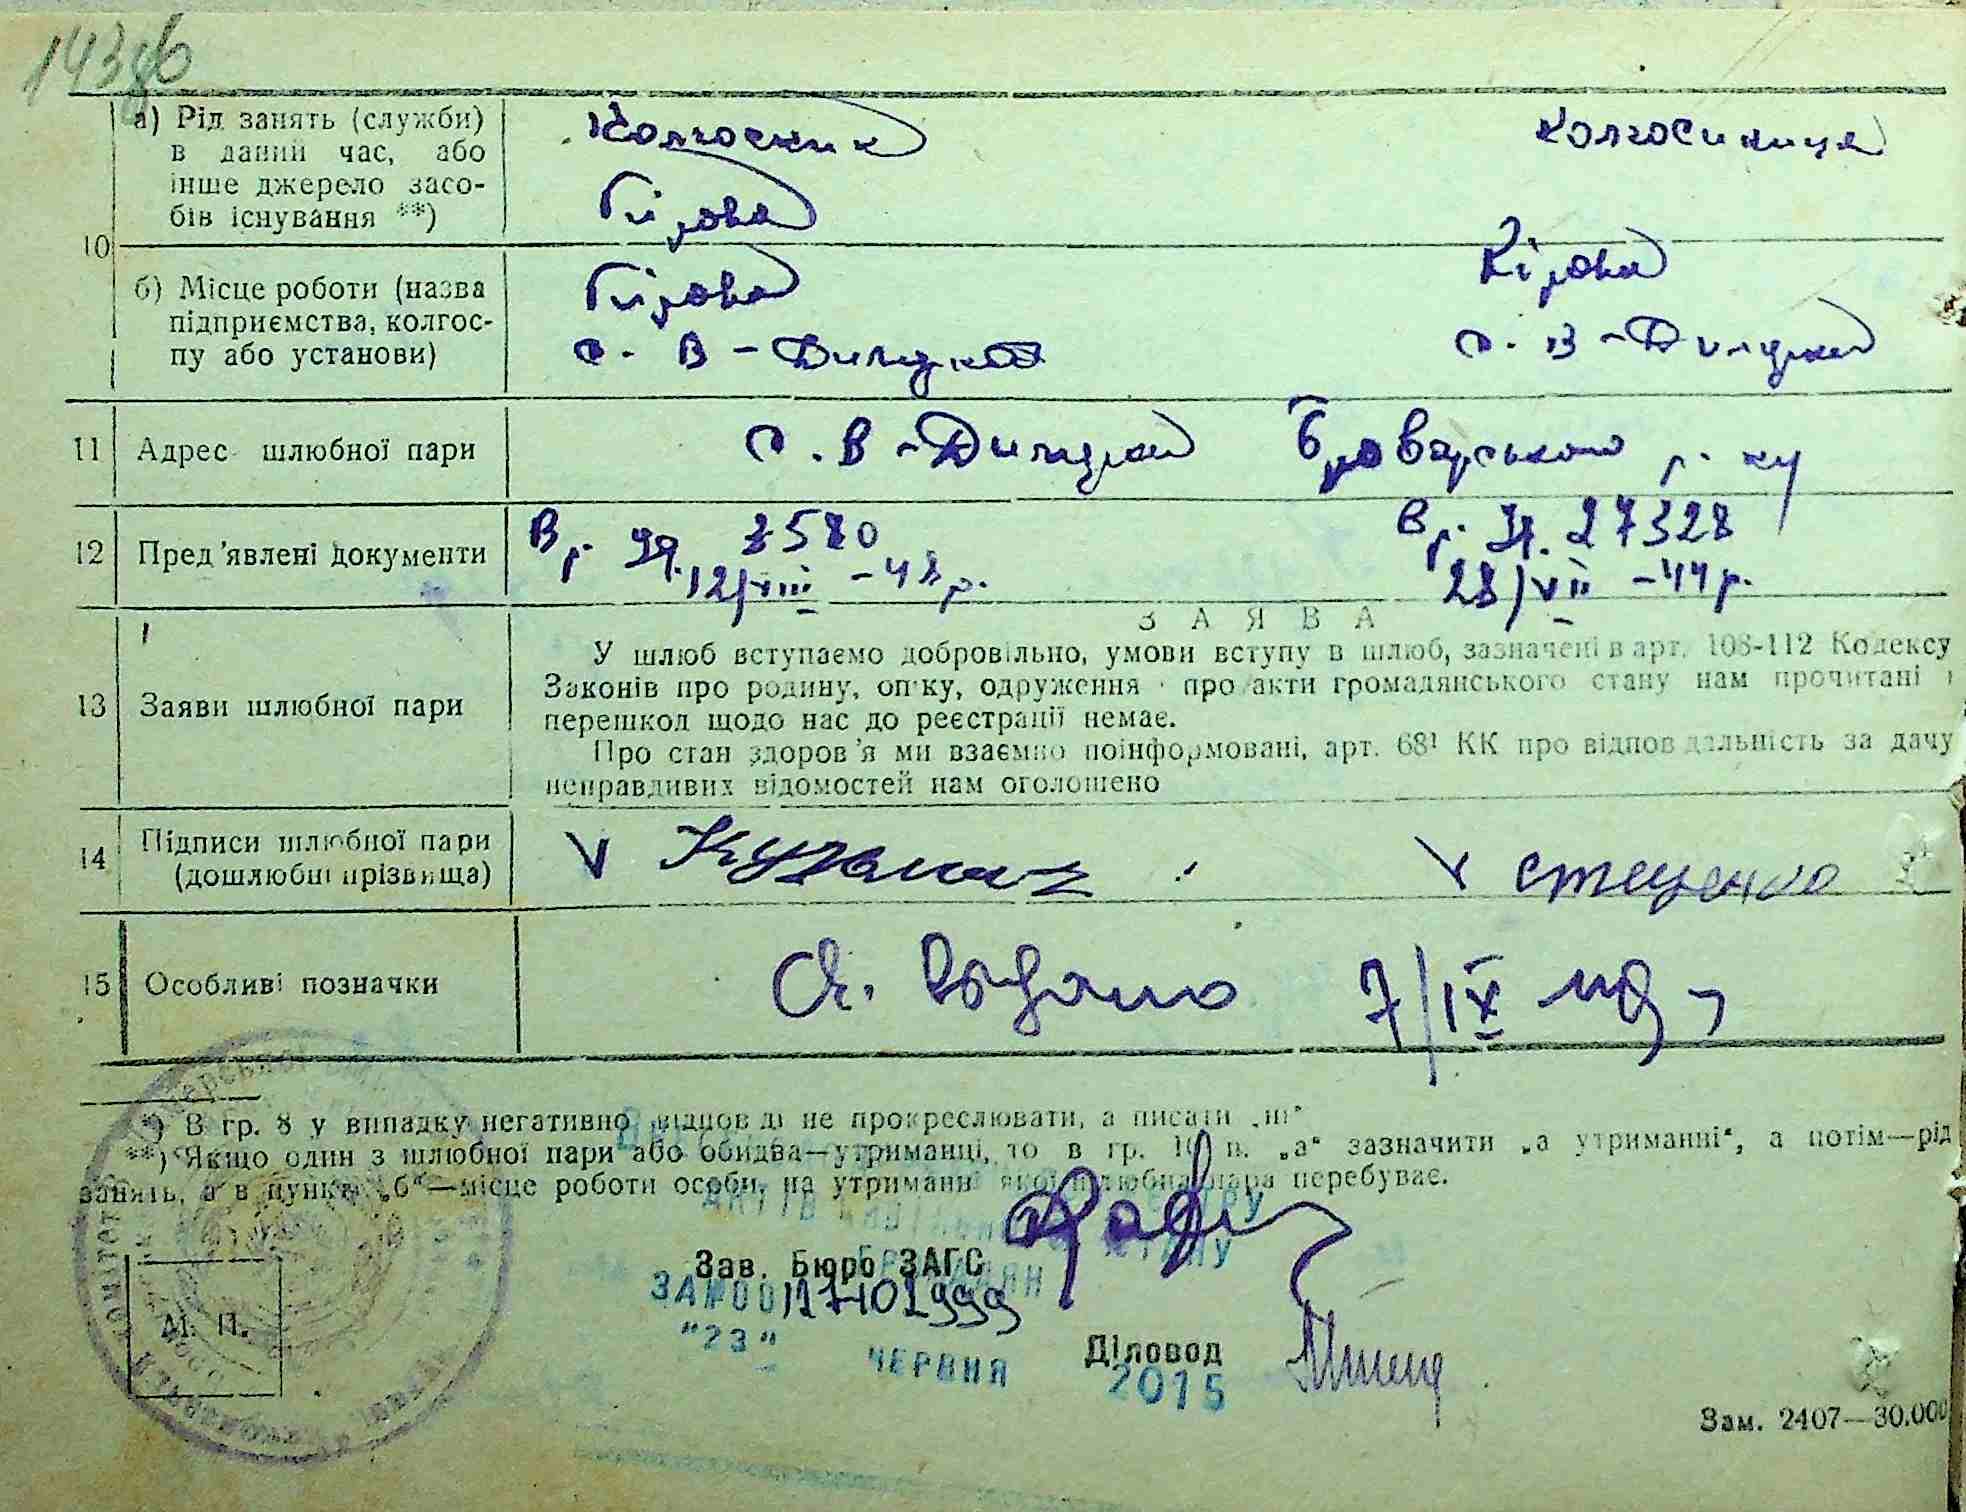 143
10
а) Рід занять (служби) в даний час, або інше джерело засобів існування **)
Колгоспник
Кірова
колгоспниця
б) Місце роботи (назва підприємства, колгоспу або установи)
Кірова
с. В-Димерка
Кірова
с. В-Димерка
11
Адрес шлюбної пари
с. В-Димерка Броварського р-ну
12
Пред'явлені документи
12/VIII -48 р.
27328
28/VII -44 р.
13
Заяви шлюбної пари
ЗАЯВА
У шлюб вступаємо добровільно, умови вступу в шлюб, зазначені в арт. 108-112 Кодексу
Законів про родину, опіку, одруження про акти громадянського стану нам прочитані і
перешкод щодо нас до реєстрації немає.
Про стан здоров'я ми взаємно поінформовані, арт. 68¹ КК про відповідальність за дачу
неправдивих відомостей нам оголошено
14
Підписи шлюбної пари
(дошлюбні прізвища)
V
V стеценко
15
Особливі позначки
7/IX
*) В гр. 8 у випадку негативної відповіді не прокреслювати, а писати „ні"
**) Якщо один з шлюбної пари або обидва—утриманці, то в гр. 10 п. „а" зазначити „а утриманні", а потім—рід
занять, а в пункті „б"—місце роботи особи, на утриманні якої шлюбна пара перебуває.
Зав. Бюро ЗАГС
"23"
ЧЕРВНЯ
2015
Діловод
М. П.
Зам. 2407—30.000